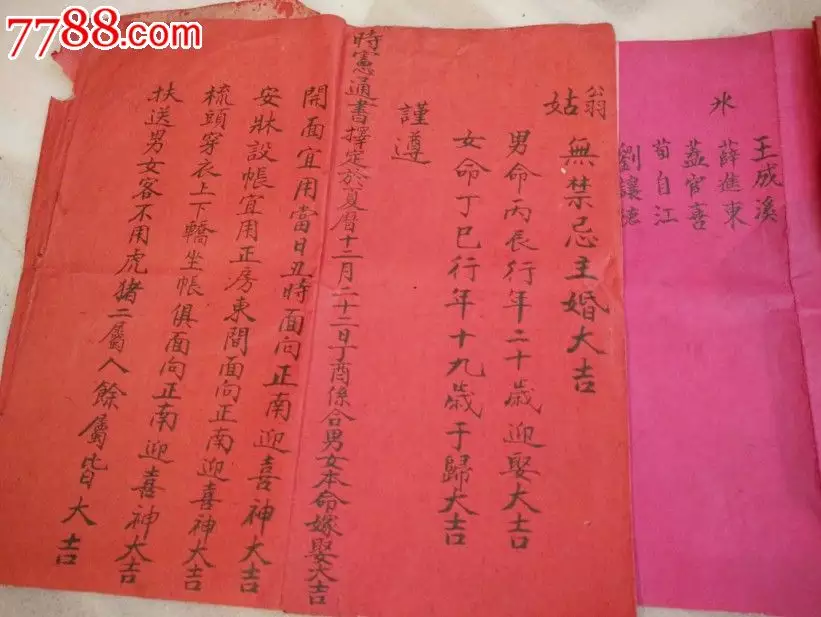 7788.com
氷
王成溪
薛進東
蓋官喜
荀自江
劉讓德
翁
姑
無禁忌主婚大吉
男命丙辰行年二十歲迎娶大吉
女命丁巳行年十九歲于歸大吉
謹遵
時憲通書擇定於夏曆十二月二十二日丁酉係合男女本命嫁娶大吉
開面宜用當日丑時面向正南迎喜神大吉
安牀設帳宜用正房東間面向正南迎喜神大吉
梳頭穿衣上下轎坐帳俱面向正南迎喜神大吉
扶送男女客不用虎猪二屬人餘屬皆大吉